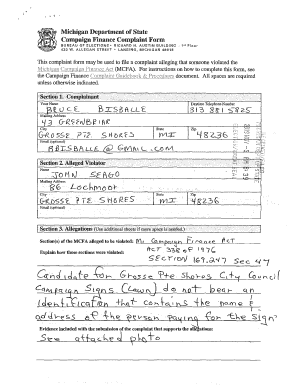 Michigan Department of State
Campaign Finance Complaint Form
BUREAU OF ELECTIONS • RICHARD H. AUSTIN BUILDING • 1ST Floor
430 W. ALLEGAN STREET • LANSING, MICHIGAN 48918
This complaint form may be used to file a complaint alleging that someone violated the
Michigan Campaign Finance Act (MCFA). For instructions on how to complete this form, see
the Campaign Finance Complaint Guidebook & Procedures document. All spaces are required
unless otherwise indicated.
Section 1. Complainant
Your Name
Daytime Telephone Number
BRUCE BISBALLE
313 881 5825
Mailing Address
43 GREENBRIAR
City
State
Zip
GROSSE PTE SHORES
MI
48236
Email (optional)
BBISBALLE@GMAIL.COM
Section 2. Alleged Violator
Name
JOHN SEAGO
Mailing Address
86 Lochmoor
City
State
Zip
GROSSE PTE SHORES
MI
48236
Email (optional)
Section 3. Allegations (Use additional sheets if more space is needed.)
Section(s) of the MCFA alleged to be violated: Mi Campaign Finance ACT
Explain how those sections were violated: ACT 388 of 1976
SECTION 169.247 Sec 47
Candidate for Grosse Pte Shores City Council
Campaign Signs (Lawn) do not bear an
Identification that contains the name &
address of the person paying for the Sign
Evidence included with the submission of the complaint that supports the allegations:
See attached photo